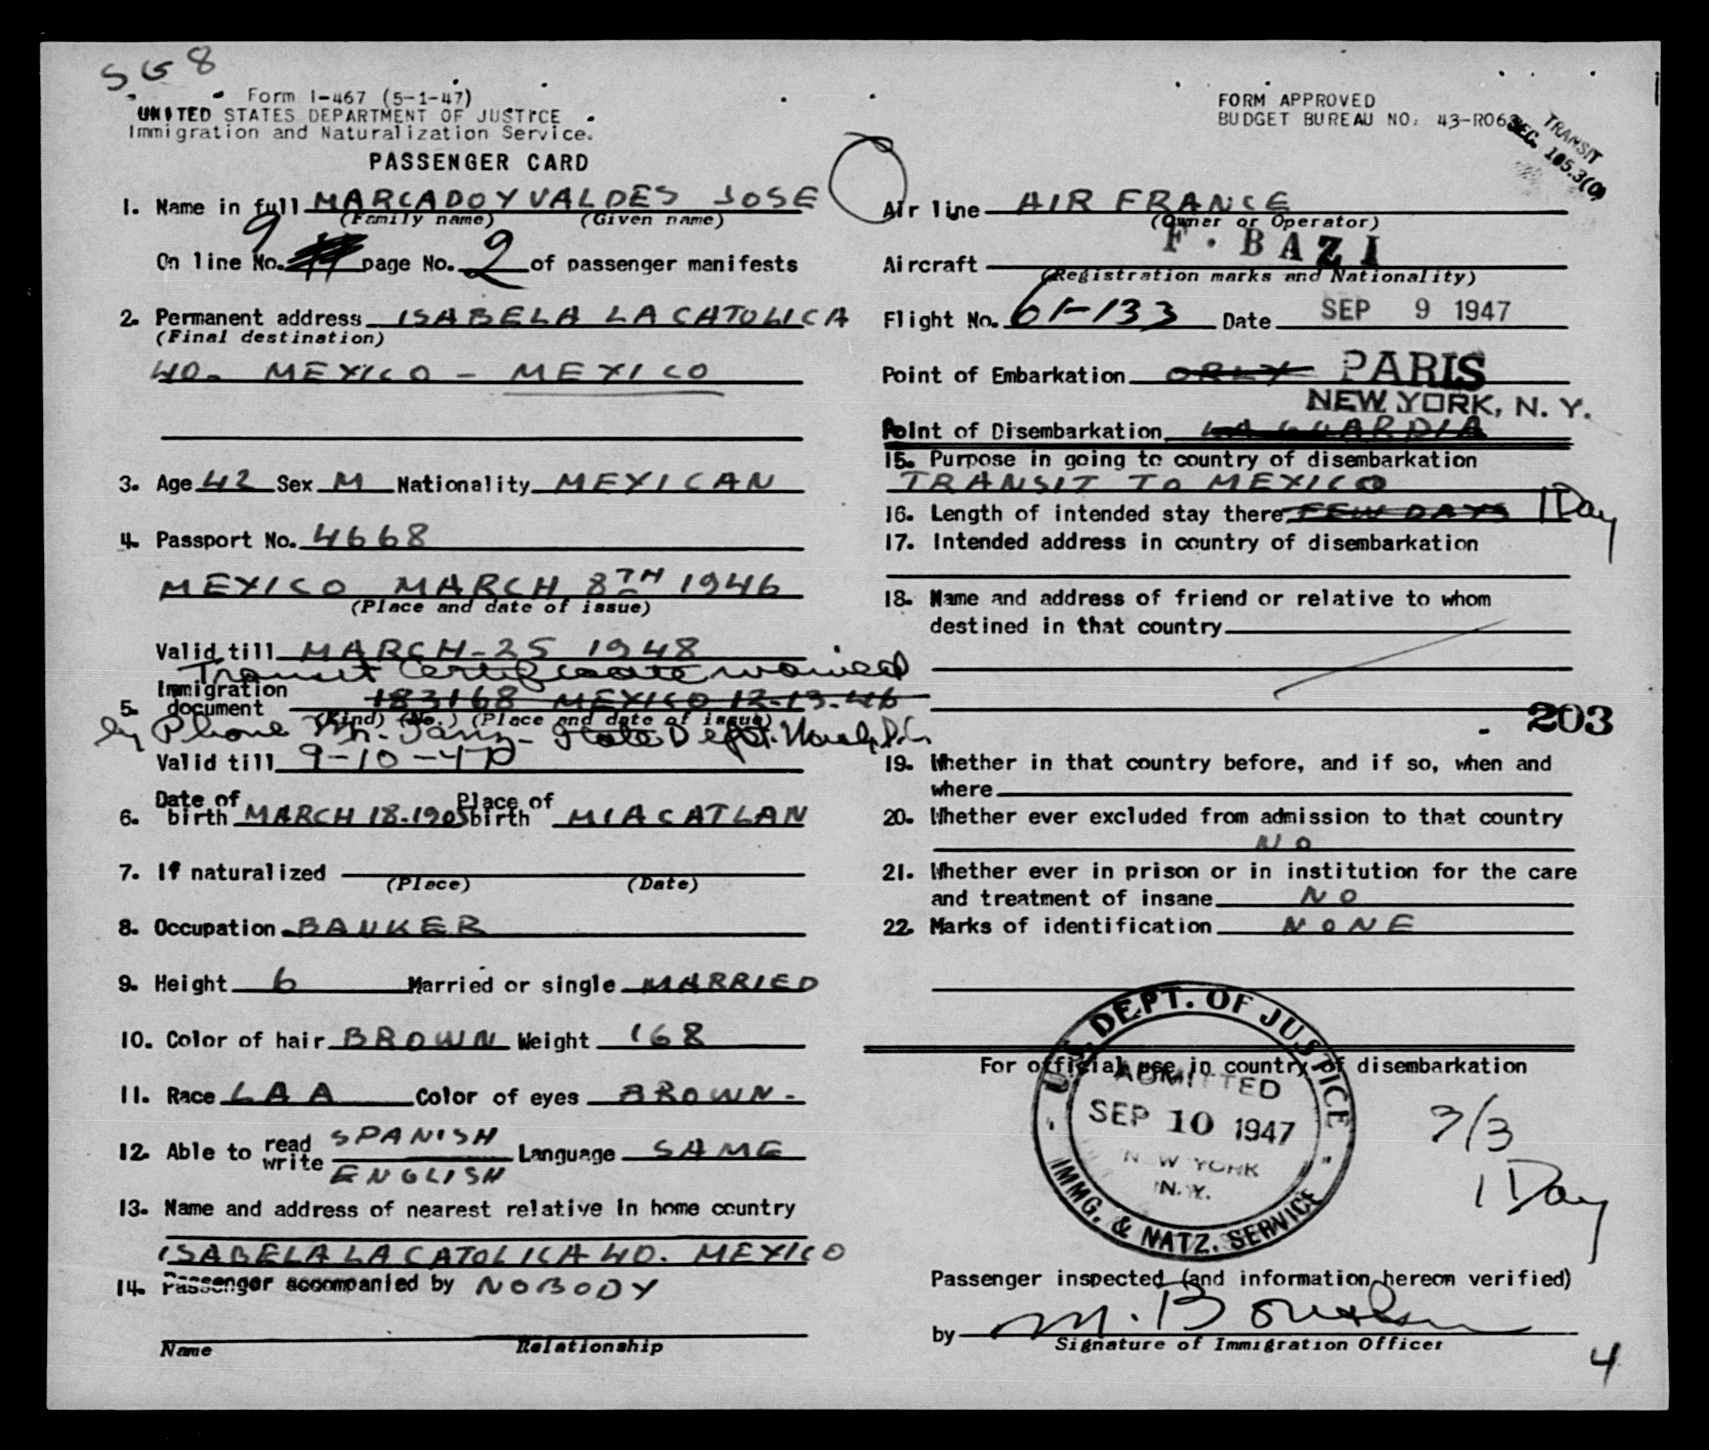 S G 8
Form I-467 (5-1-47)
UNITED STATES DEPARTMENT OF JUSTICE
Immigration and Naturalization Service.
PASSENGER CARD
1. Name in full MARCADO Y VALDES JOSE
(Family name) (Given name)
9
On line No. page No. 2 of passenger manifests
2. Permanent address ISABELA LA CATOLICA
(Final destination)
40. MEXICO - MEXICO
3. Age 42 Sex M Nationality MEXICAN
4. Passport No. 4668
MEXICO MARCH 8TH 1946
(Place and date of issue)
Valid till MARCH-25 1948
Transit Certificate waived
5. Immigration document 183168 MEXICO 12-13-46
(Kind) (No.) (Place and date of issue)
by Phone Mr. State Dept.
Valid till 9-10-47
6. Date of birth MARCH 18.1905 Place of birth MIACATLAN
7. If naturalized
(Place) (Date)
8. Occupation BANKER
9. Height 6 Married or single MARRIED
10. Color of hair BROWN Weight 168
11. Race LAA Color of eyes BROWN-
12. Able to read SPANISH write ENGLISH Language SAME
13. Name and address of nearest relative in home country
ISABELA LA CATOLICA 40. MEXICO
14. Passenger accompanied by NOBODY
Name Relationship
FORM APPROVED
BUDGET BUREAU NO. 43-R06
TRANSIT
SEC. 105.3(0)
Air line AIR FRANCE
(Owner or Operator)
Aircraft F. BAZI
(Registration marks and Nationality)
Flight No. 61-133 Date SEP 9 1947
Point of Embarkation ORLY PARIS
NEW YORK, N. Y.
Point of Disembarkation LA GUARDIA
15. Purpose in going to country of disembarkation
TRANSIT TO MEXICO
16. Length of intended stay there FEW DAYS 1 Day
17. Intended address in country of disembarkation
18. Name and address of friend or relative to whom
destined in that country
203
19. Whether in that country before, and if so, when and
where
20. Whether ever excluded from admission to that country
NO
21. Whether ever in prison or in institution for the care
and treatment of insane NO
22. Marks of identification NONE
For official use in country of disembarkation
U.S. DEPT. OF JUSTICE
ADMITTED
SEP 10 1947
NEW YORK
N.Y.
IMMG. & NATZ. SERVICE
3/3
1 Day
Passenger inspected (and information hereon verified)
by M.
Signature of Immigration Officer
4